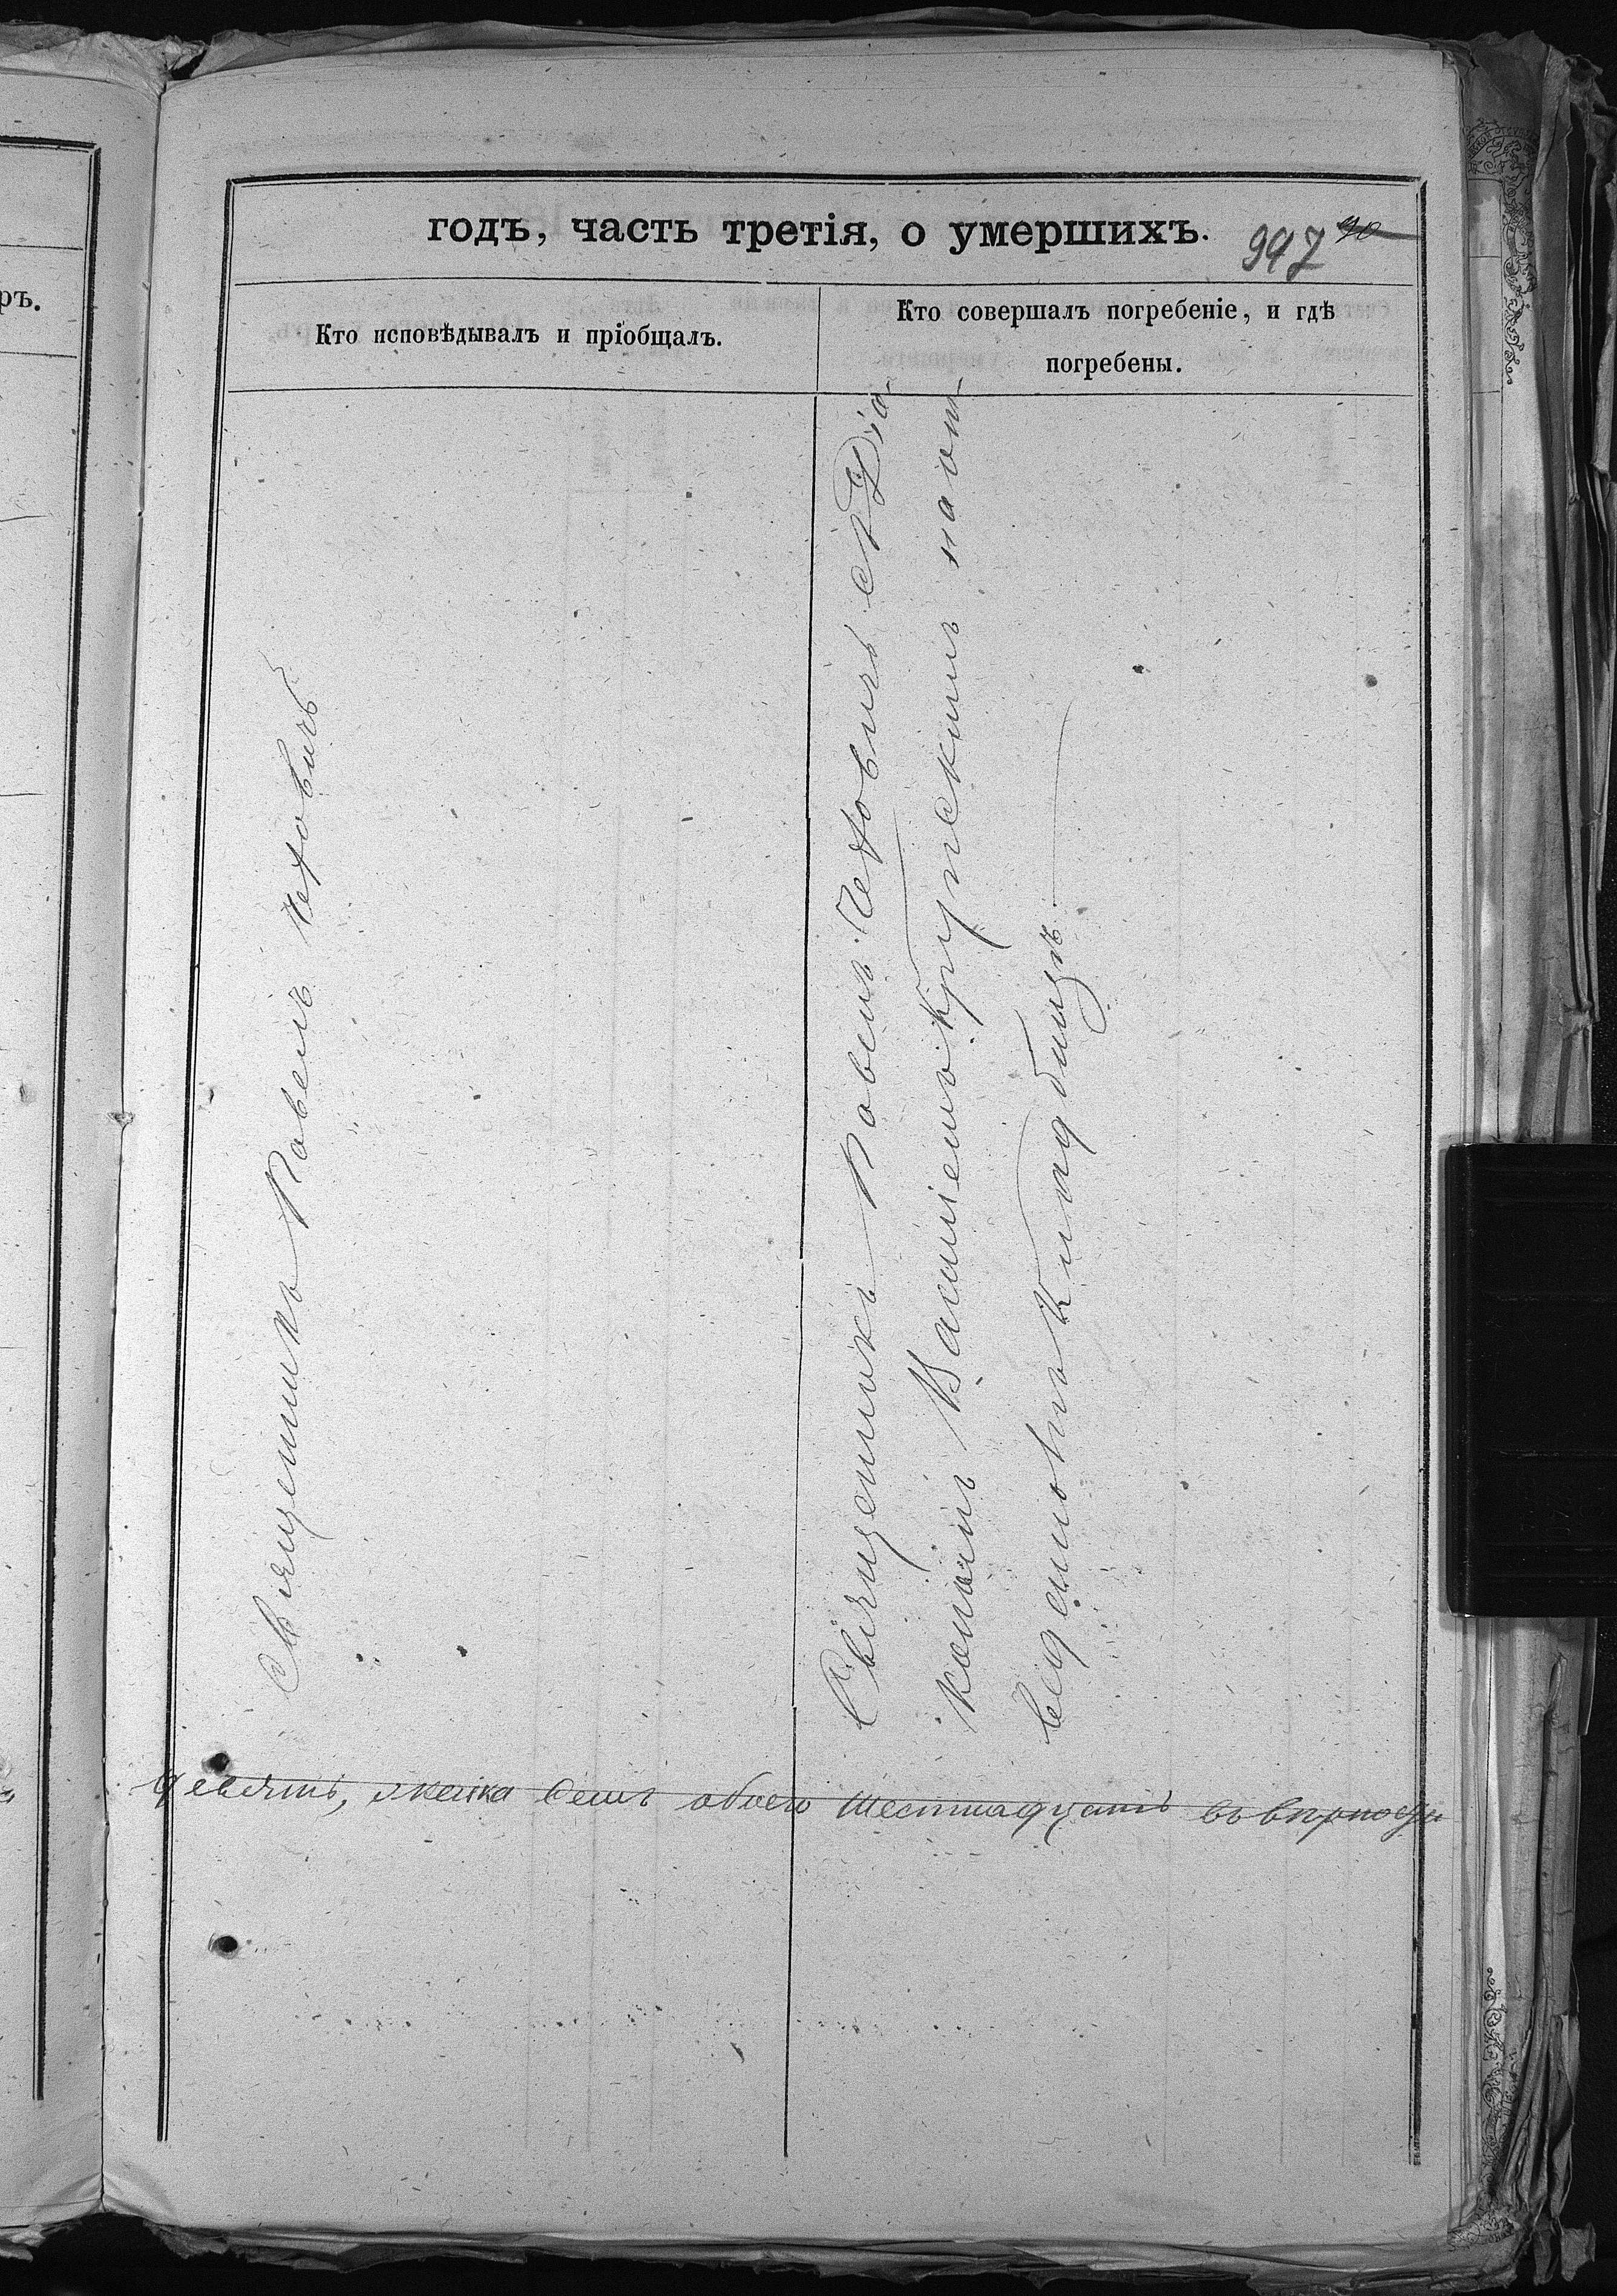 ръ.
годъ, часть третія, о умершихъ.
947 40
Кто исповѣдывалъ и пріобщалъ.
Кто совершалъ погребеніе, и гдѣ
погребены.
Священникъ Павелъ Чеховичъ
Священникъ Павелъ Чеховичъ съ Діа
кономъ Василіемъ Крупскимъ на от
веденномъ кладбищѣ
девять, женска семь обоего шестнадцать въ вѣрности